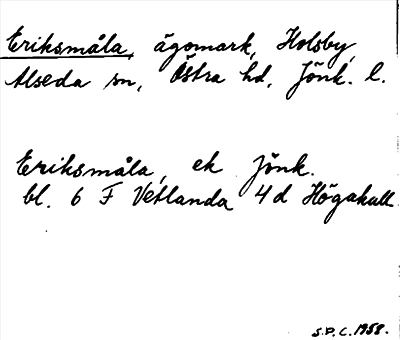 Eriksmåla, ägomark, Holsby,
Alseda sn, Östra hd, Jönk. l.
Eriksmåla, ek Jönk.
bl. 6 F Vetlanda 4 d Högakull.
S.P.C. 1958.